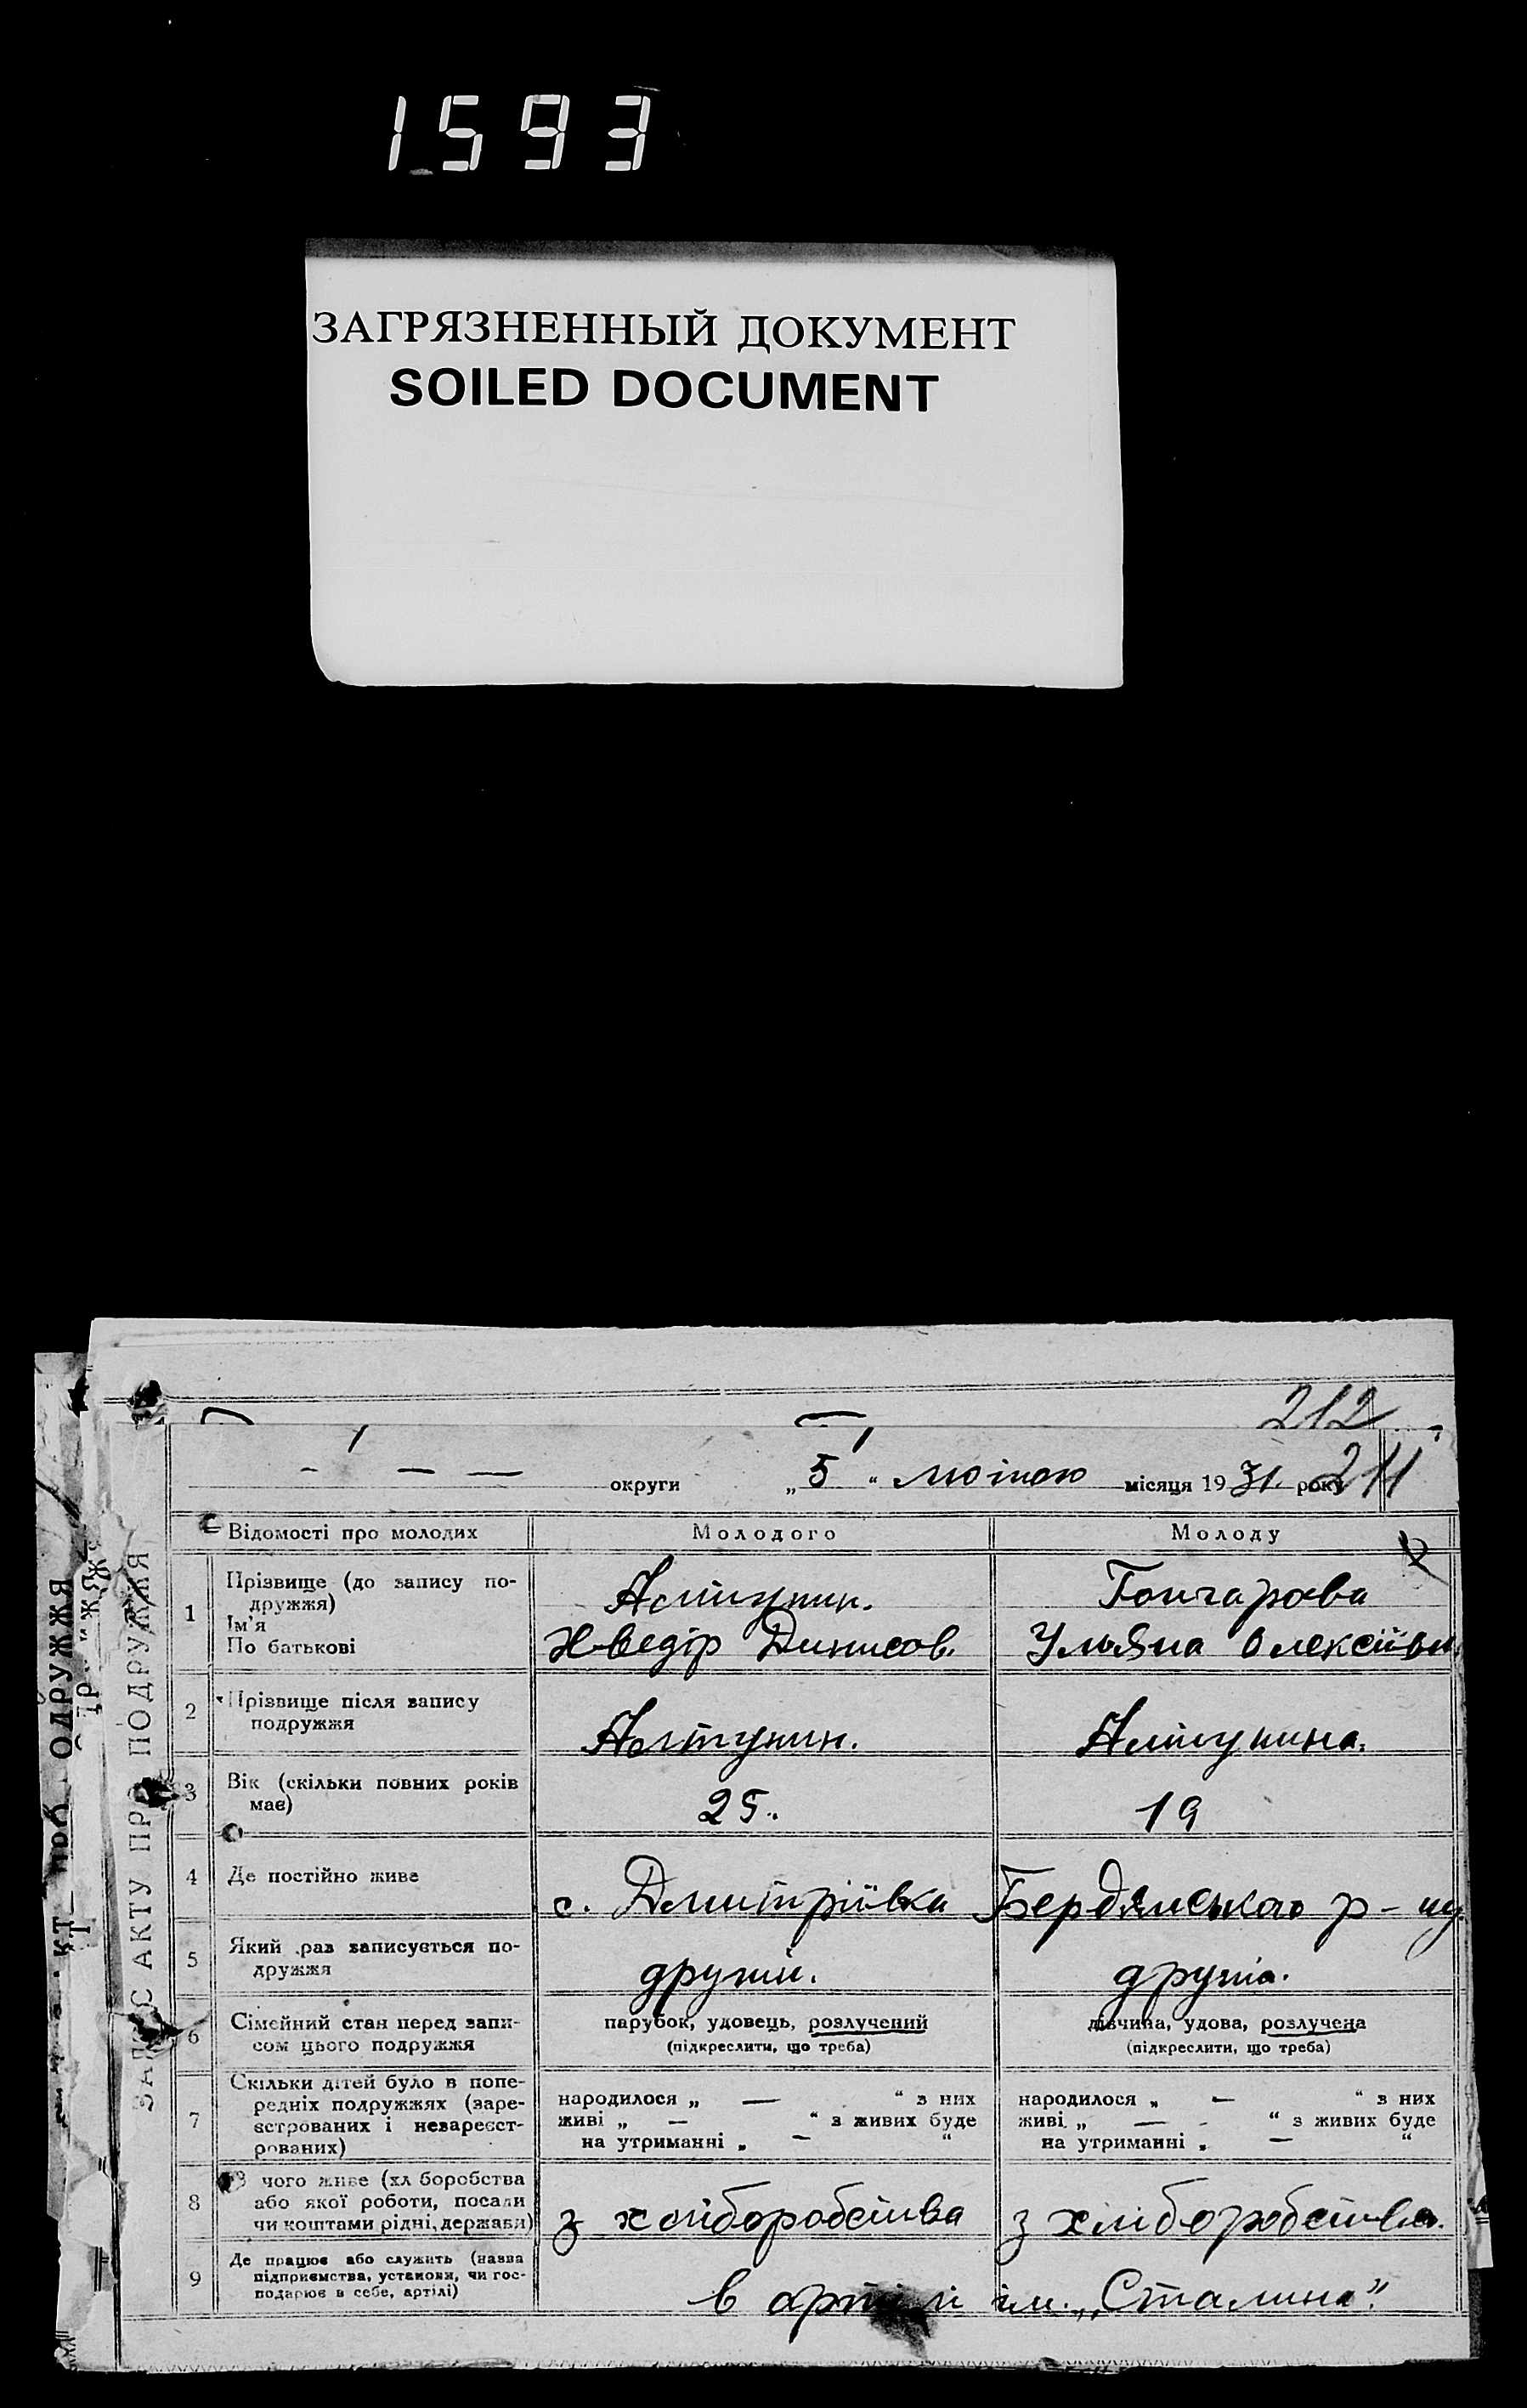 1593
ЗАГРЯЗНЕННЫЙ ДОКУМЕНТ
SOILED DOCUMENT
212
округи „ 5 “ лютого місяця 1931. року 211
ЗАПИС АКТУ ПРО ПОДРУЖЖЯ
ОДРУЖЖЯ
Відомості про молодих Молодого Молоду
1 Прізвище (до запису по-
дружжя)
Ім'я
По батькові
Алтунин. Гончарова
Хведір Динисов. Ульяна Олексіївн.
2 Прізвище після запису
подружжя
Алтунин. Алтунина.
3 Вік (скільки повних років
має)
25. 19
4 Де постійно живе
с. Дмитріївка Бердянського р-ну.
5 Який раз записується по-
дружжя
другий. другіа.
6 Сімейний стан перед запи-
сом цього подружжя
парубок, удовець, розлучений дівчина, удова, розлучена
(підкреслити, що треба) (підкреслити, що треба)
7 Скільки дітей було в попе-
редніх подружжях (заре-
єстрованих і незареєст-
рованих)
народилося „ — “ з них народилося „ — “ з них
живі „ — “ з живих буде живі „ — “ з живих буде
на утриманні „ — “ на утриманні „ — “
8 З чого живе (хліборобства
або якої роботи, посади
чи коштами рідні, держави)
з хліборобства з хліборобства.
9 Де працює або служить (назва
підприємства, установи, чи гос-
подарює в себе, артілі)
в артілі ім. „Сталина".